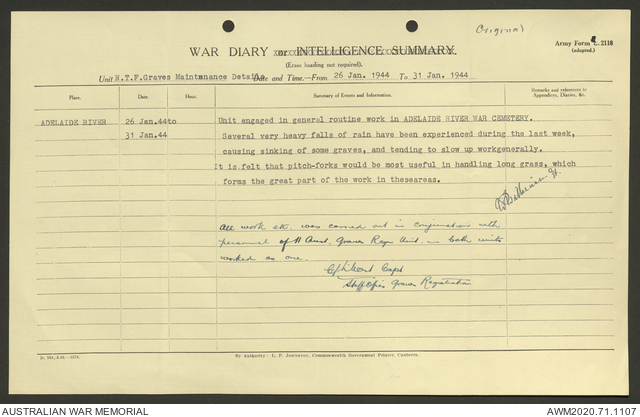 Original
Army Form C. 2118
(adapted.)
WAR DIARY or INTELLIGENCE SUMMARY.
(Erase heading not required).
Unit N.T.F.Graves Maintenance Details Date and Time.—From 26 Jan. 1944 To 31 Jan. 1944
Place. Date. Hour. Summary of Events and Information. Remarks and references to
Appendices, Diaries, &c.
ADELAIDE RIVER 26 Jan.44to Unit engaged in general routine work in ADELAIDE RIVER WAR CEMETERY.
31 Jan.44 Several very heavy falls of rain have been experienced during the last week,
causing sinking of some graves, and tending to slow up workgenerally.
It is felt that pitch-forks would be most useful in handling long grass, which
forms the great part of the work in theseareas.
All work etc. was carried out in conjunction with
personnel of 11 Aust. Graves Regn Unit. — both units
worked as one.
Capt
Staff Offr Graves Registration
By Authority: L. F. Johnston, Commonwealth Government Printer, Canberra.
AUSTRALIAN WAR MEMORIAL
AWM2020.71.1107